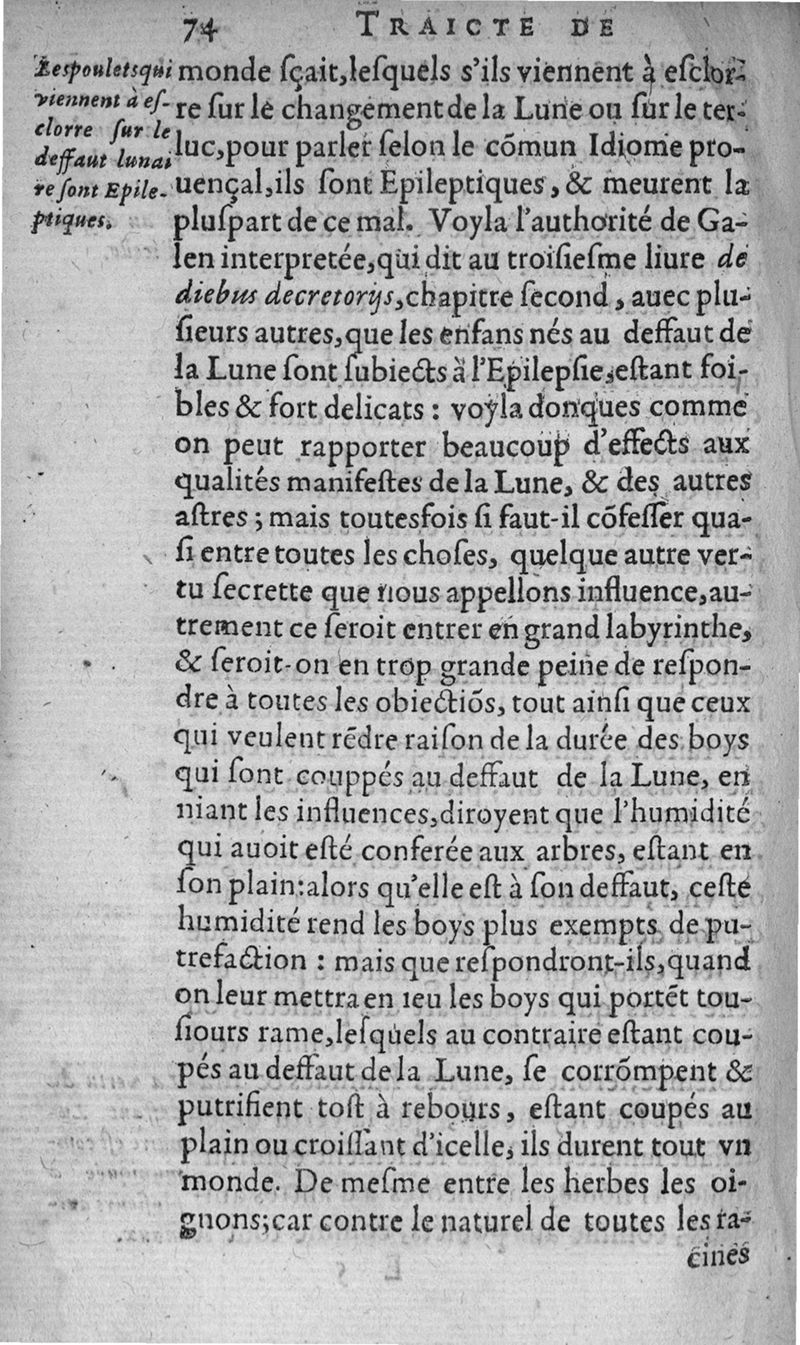 74 TRAICTE DE
Les poulets qui
viennent à eſ-
clorre ſur le
deffaut lunai
re ſont Epile-
ptiques.
monde ſçait,leſquels s'ils viennent à eſclor-
re ſur le changement de la Lune ou ſur le ter-
luc,pour parler ſelon le cõmun Idiome pro-
uençal,ils ſont Epileptiques, & meurent la
pluſpart de ce mal. Voyla l'authorité de Ga-
len interpretée,qui dit au troiſieſme liure de
diebus decretorijs,chapitre ſecond, auec plu-
ſieurs autres,que les enfans nés au deffaut de
la Lune ſont ſubiects à l'Epilepſie,eſtant foi-
bles & fort delicats : voyla donques comme
on peut rapporter beaucoup d'effects aux
qualités manifeſtes de la Lune, & des autres
aſtres ; mais toutesfois ſi faut-il cõfeſſer qua-
ſi entre toutes les choſes, quelque autre ver-
tu ſecrette que nous appellons influence,au-
trement ce ſeroit entrer en grand labyrinthe,
& ſeroit-on en trop grande peine de reſpon-
dre à toutes les obiectiõs, tout ainſi que ceux
qui veulent rẽdre raiſon de la durée des boys
qui ſont couppés au deffaut de la Lune, en
niant les influences,diroyent que l'humidité
qui auoit eſté conferée aux arbres, eſtant en
ſon plain:alors qu'elle eſt à ſon deffaut, ceſte
humidité rend les boys plus exempts de pu-
trefaction : mais que reſpondront-ils,quand
on leur mettra en ieu les boys qui portẽt tou-
ſiours rame,leſquels au contraire eſtant cou-
pés au deffaut de la Lune, ſe corrõmpent &
putrifient toſt à rebours, eſtant coupés au
plain ou croiſſant d'icelle, ils durent tout vn
monde. De meſme entre les herbes les oi-
gnons;car contre le naturel de toutes les ra-
cines